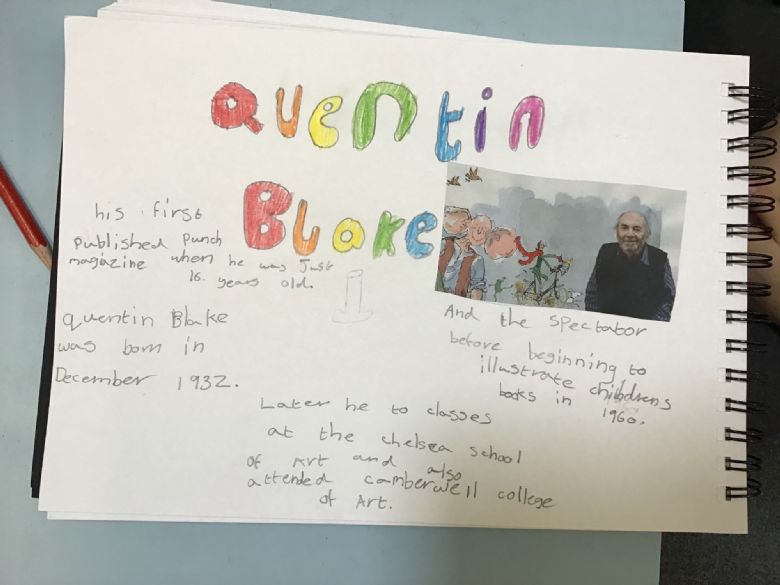 Quentin
Blake
his first
published punch
magazine when he was Just
16. years old.
quentin Blake
was born in
December 1932.
And the spectator
before beginning to
illustrate childrens
books in 1960.
Later he to classes
at the chelsea school
of Art and also
attended camberwell college
of Art.